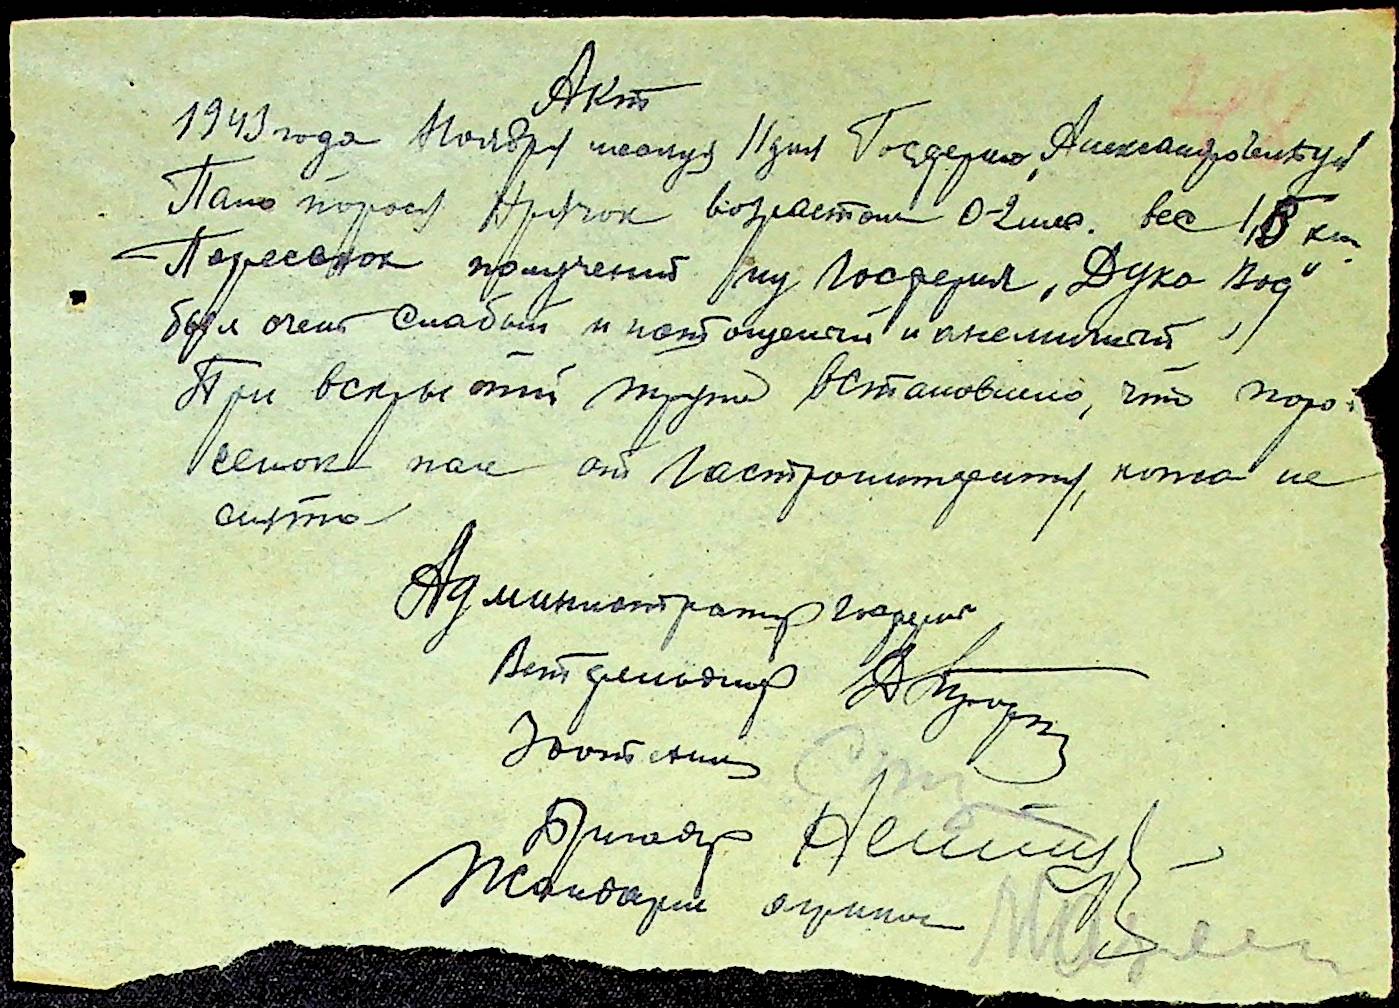 Акт
1943 года Ноября месяца 11 дня Госферма „Александрфельд“
Пало порося Хрячок возрастом 0-2 мес. вес 1,5 кгр.
Паресенок полученый из Госферми „Дука Вод“
был очень слабый и истощеный и анемичный
При вскрытии трупа встановлено, что поро-
сенок пал от Гастроэнтерита, кожа не
снята
Администратор госферми
Ветфельдшер
Зоотехник
Бригадир
Жандарм